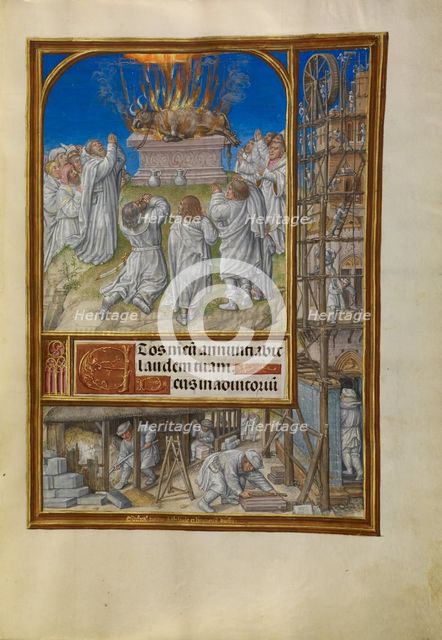 Heritage Heritage
Heritage Heritage Heritage
Et os meū annunciabit
laudem tuam
Deus in adiutoriū
Heritage Heritage